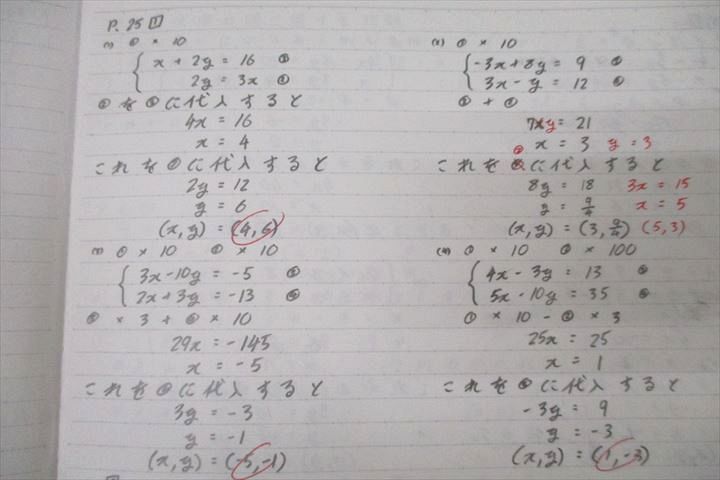 P. 25 1
(1) ① × 10
x + 2y = 16
2y = 3x
を に代入すると
4x = 16
x = 4
これを に代入すると
2y = 12
y = 6
(x, y) = (4, 6)
(2) ① × 10
-3x + 8y = 9
3x - y = 12
+
7y = 21
x = 3 y = 3
これを に代入すると
8y = 18 3x = 15
y = 9/4 x = 5
(x, y) = (3, 9/4) (5, 3)
(3) ① × 10 ② × 10
3x - 10y = -5
2x + 3y = -13
× 3 + × 10
29x = -145
x = -5
これを に代入すると
3y = -3
y = -1
(x, y) = (-5, -1)
(4) ① × 10 ② × 100
4x - 3y = 13
5x - 10y = 35
× 10 - × 3
25x = 25
x = 1
これを に代入すると
-3y = 9
y = -3
(x, y) = (1, -3)